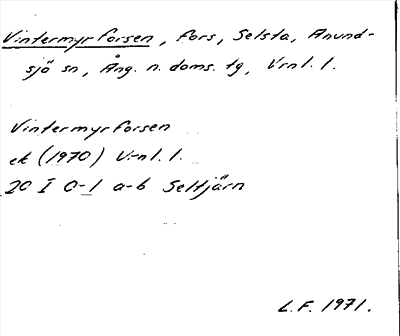 Vintermyrforsen, fors, Selsta, Anund-
sjö sn, Ång. n. doms. tg, Vrnl. l.
Vintermyrforsen
ek (1970) V-nl. l.
20 I 0-1 a-b Seltjärn
L.F. 1971.